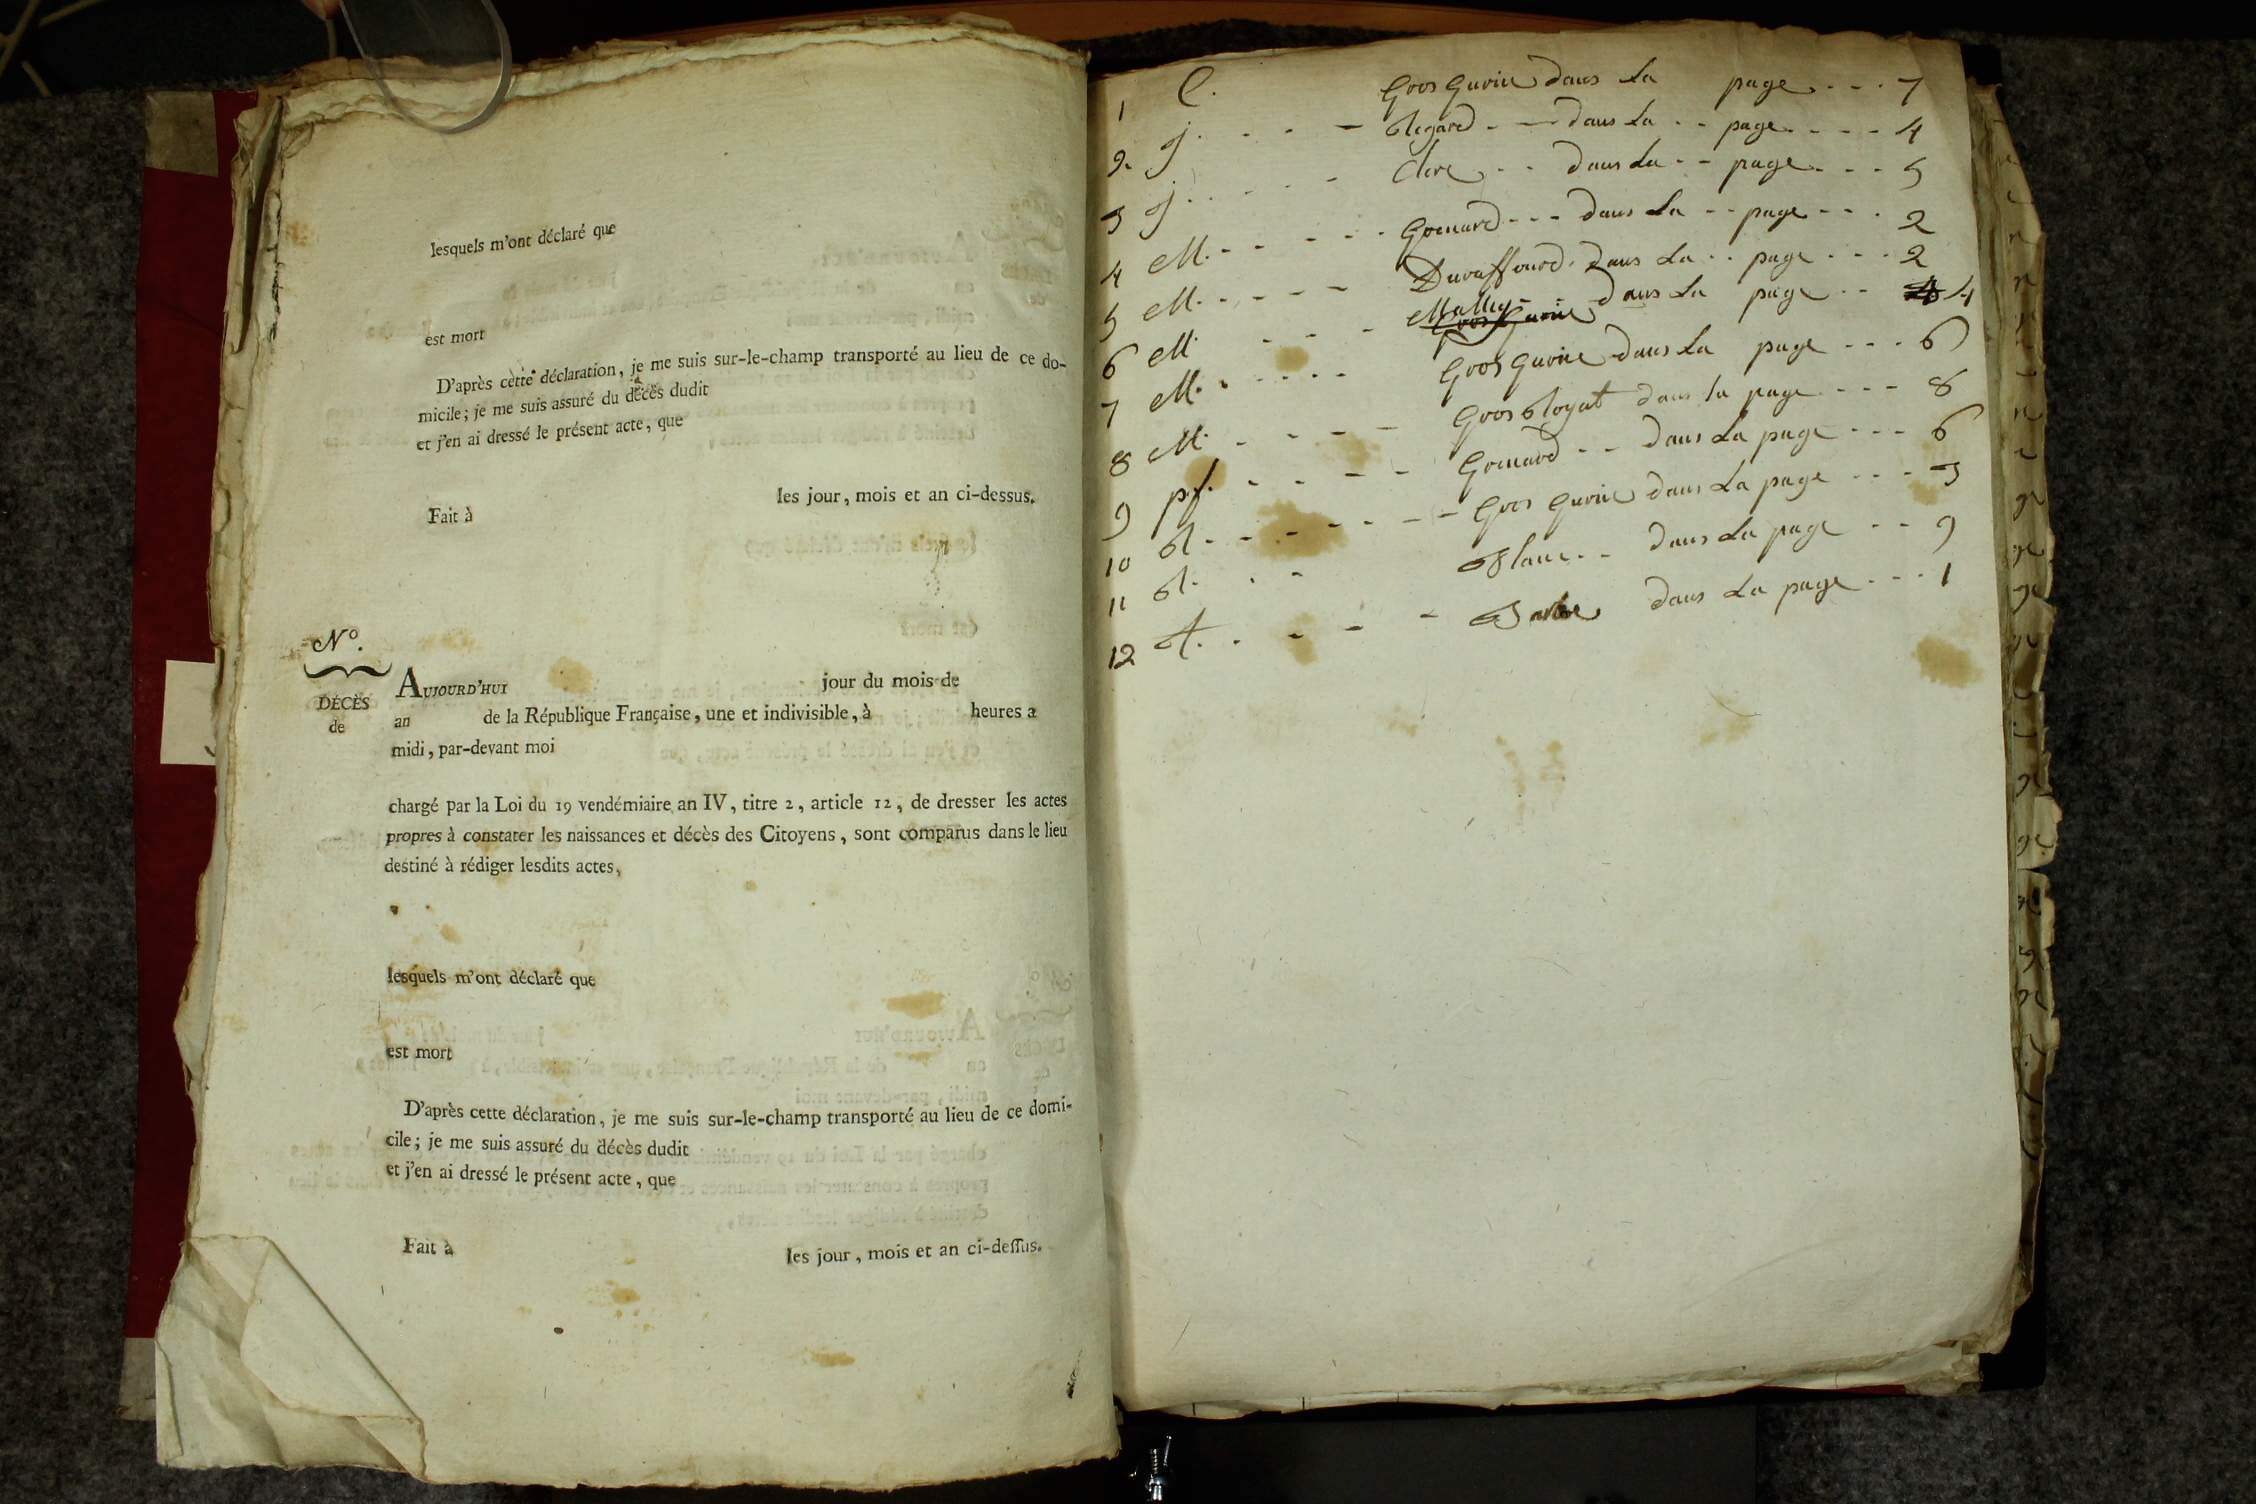 lesquels m'ont déclaré que
est mort
D'après cette déclaration, je me suis sur-le-champ transporté au lieu de ce do-
micile; je me suis assuré du décès dudit
et j'en ai dressé le présent acte, que
Fait à les jour, mois et an ci-dessus.
N°.
DÉCÈS
de
AUJOURD'HUI jour du mois de
an de la République Française, une et indivisible, à heures a
midi, par-devant moi
chargé par la Loi du 19 vendémiaire an IV, titre 2, article 12, de dresser les actes
propres à constater les naissances et décès des Citoyens, sont comparus dans le lieu
destiné à rédiger lesdits actes,
lesquels m'ont déclaré que
est mort
D'après cette déclaration, je me suis sur-le-champ transporté au lieu de ce domi-
cile; je me suis assuré du décès dudit
et j'en ai dressé le présent acte, que
Fait à les jour, mois et an ci-deſſus.
1 C. Gros Gurin dans La page - - - 7
2. J. - - - dans La - - page - - - - 4
3 J. - - - - Clerc - - dans La - - page - - - 5
4 M. - - - - - Gomard - - - dans La - - page - - - 2
5 M. - - - - Duraffourd - dans La - - page - - - 2
6 M - - - dans La page - - 4
7 M. - - - - Gros Gurin dans La page - - - 6
8 M. - - - - - dans la page - - - 8
9 - - - - Gomard - - dans La page - - - 6
10 - - - - - - Gros Gurin dans La page - - - 3
11 - - Blanc - - dans La page - - 9
12 A. - - - - dans La page - - - 1